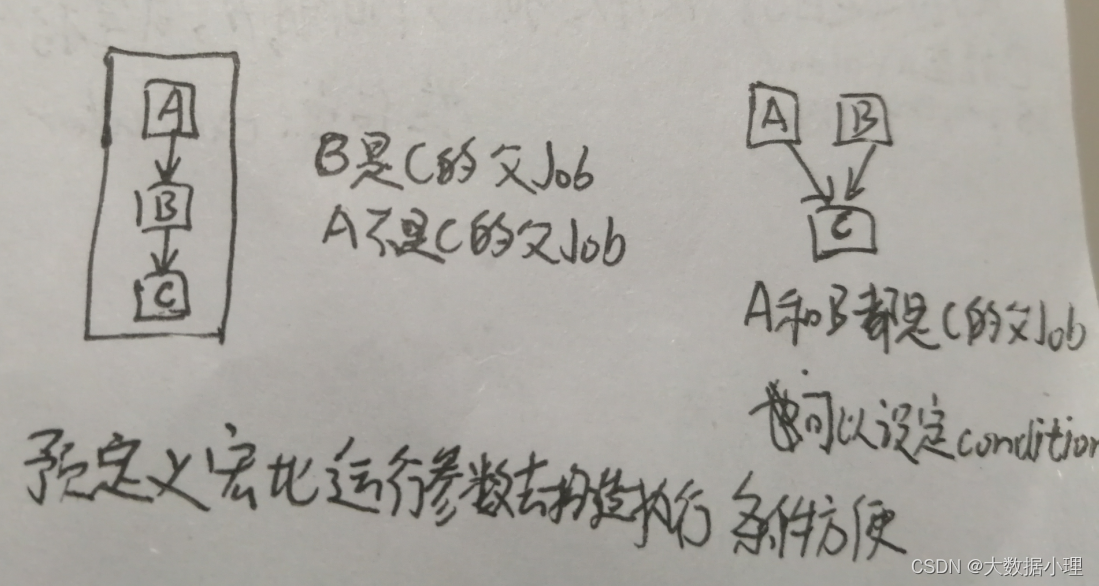 A
B
C
B是C的父Job
A不是C的父Job
A B
C
A和B都是C的父Job
也可以设定condition
预定义宏比运行参数去构造执行条件方便
CSDN @大数据小理